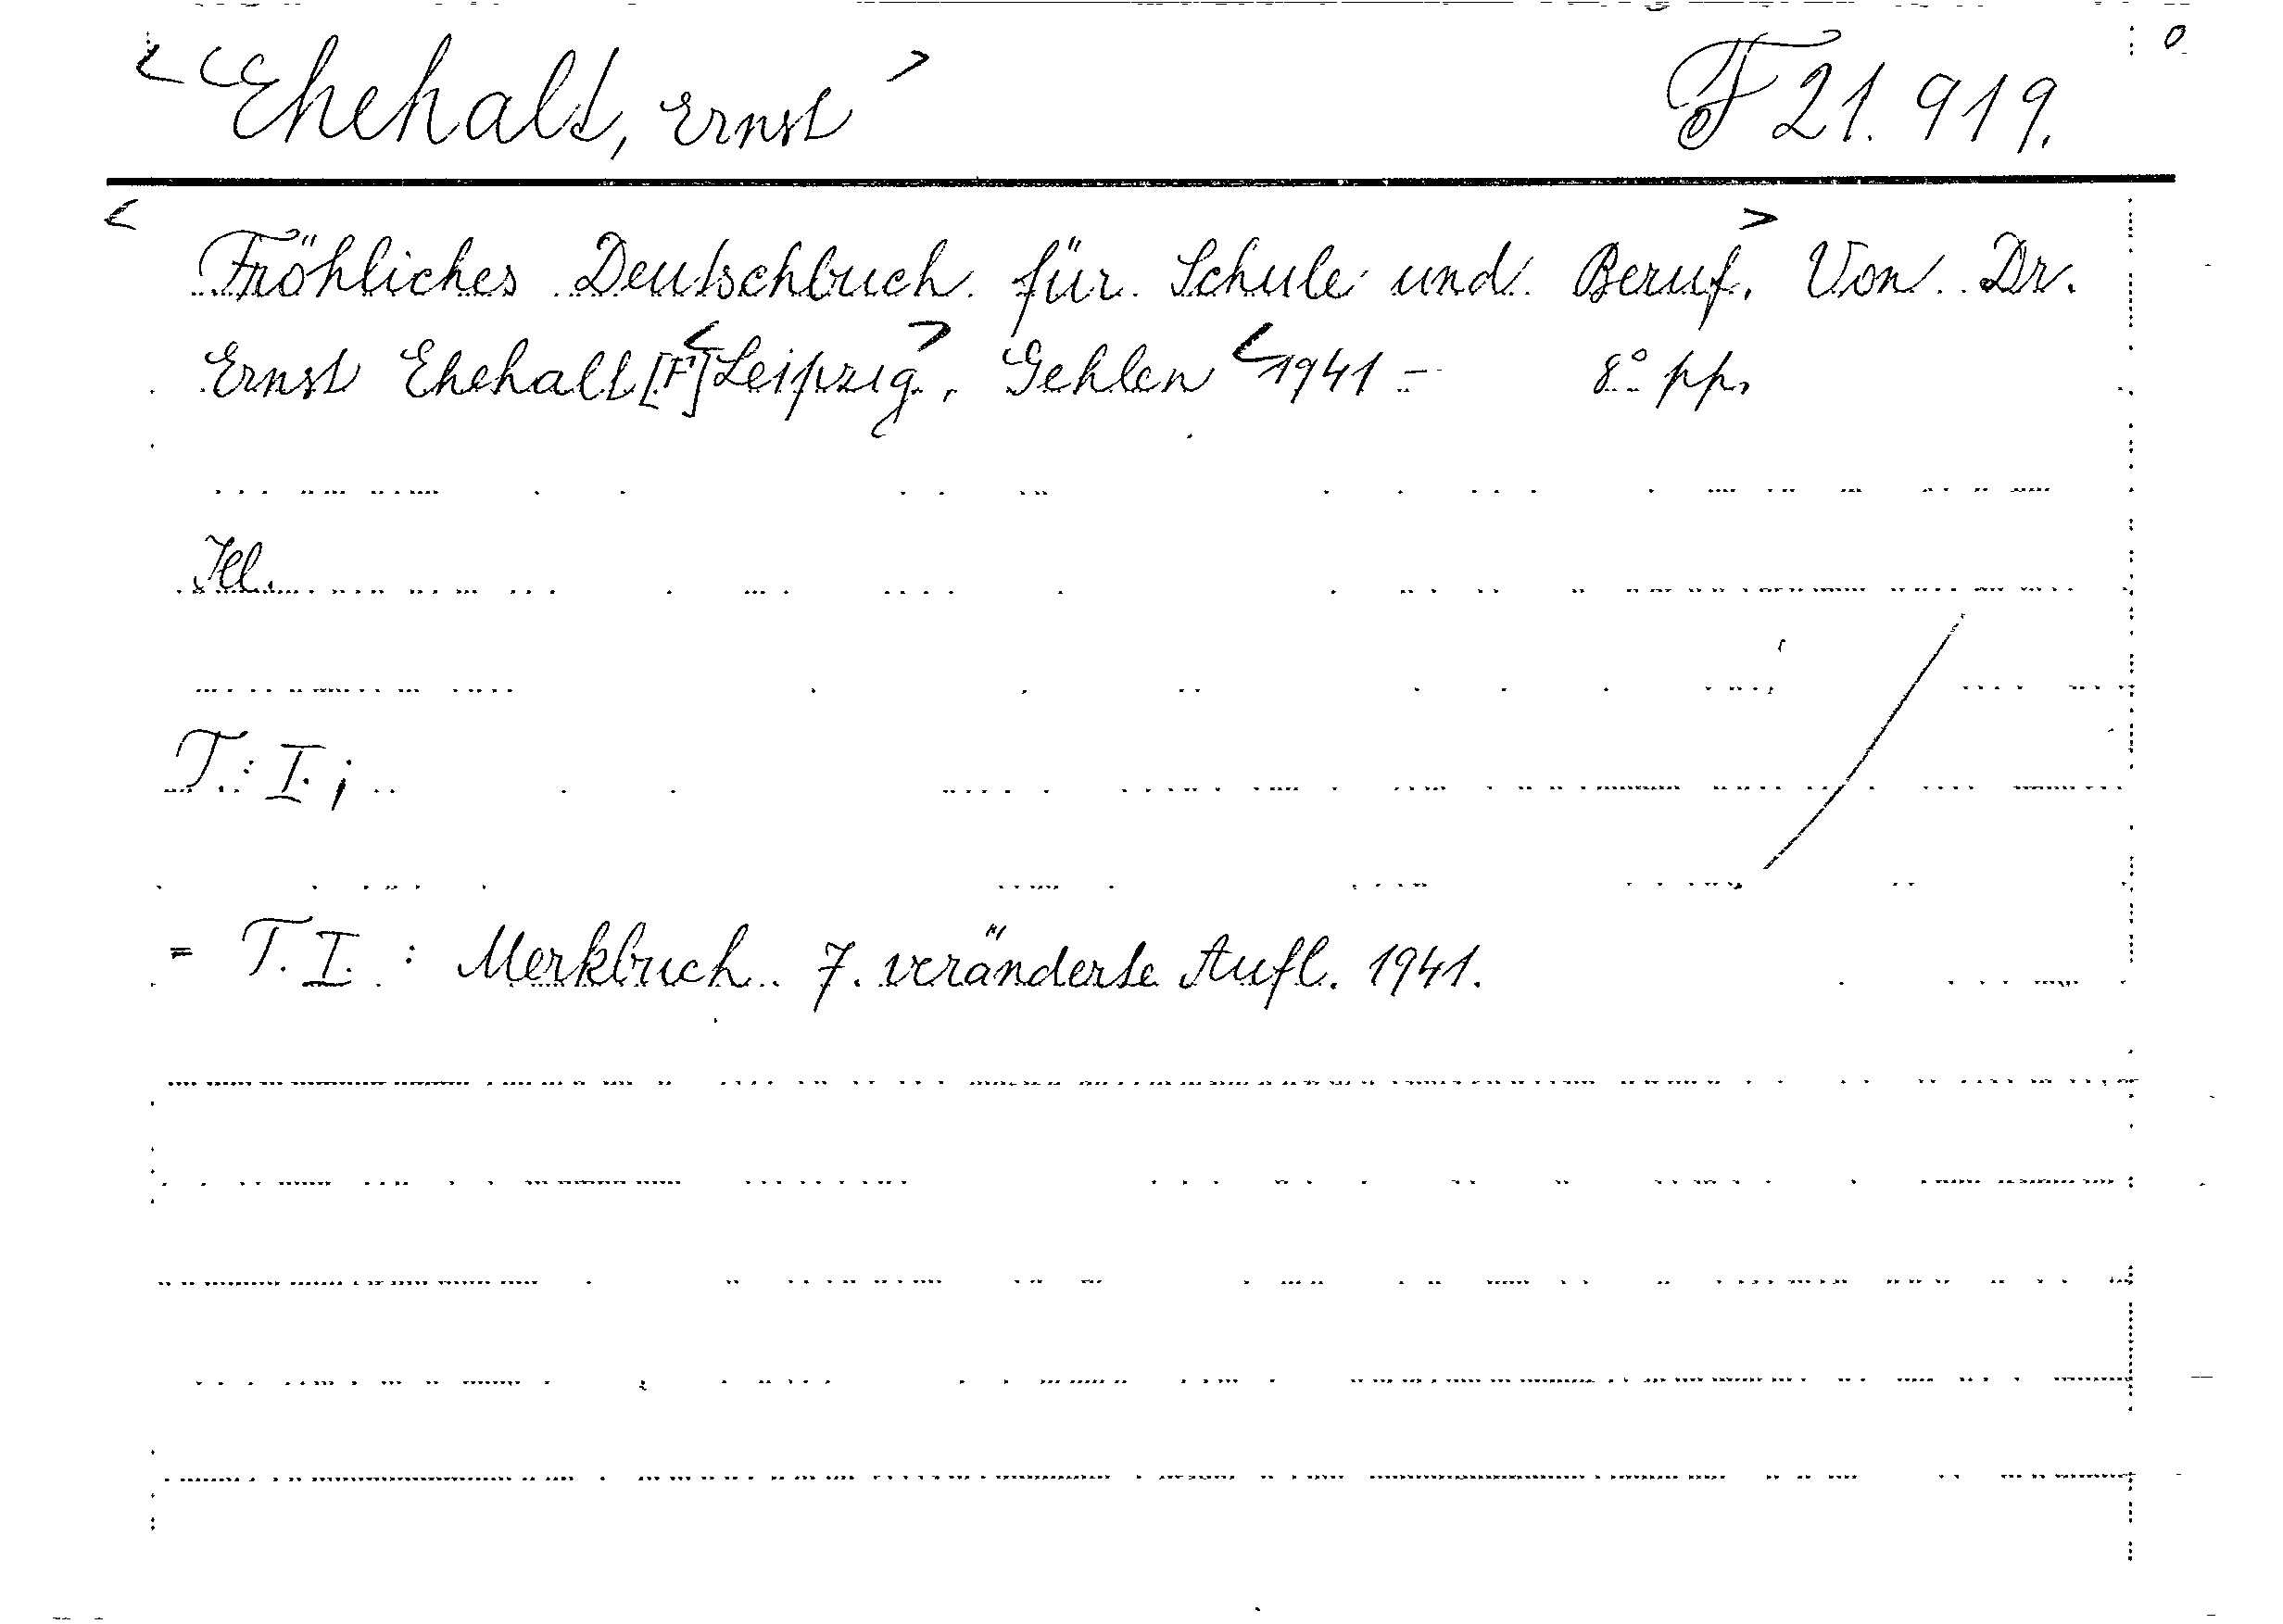 <Ehehalt, Ernst> F 21.919.
<Fröhliches Deutschbuch für Schule und Beruf.> Von Dr.
Ernst Ehehalt [F] <Leipzig>, Gehlen <1941 - 8° pp.
Ill.
T.: I. ;
= T. I. : Merkbuch. 7. veränderte Aufl. 1941.